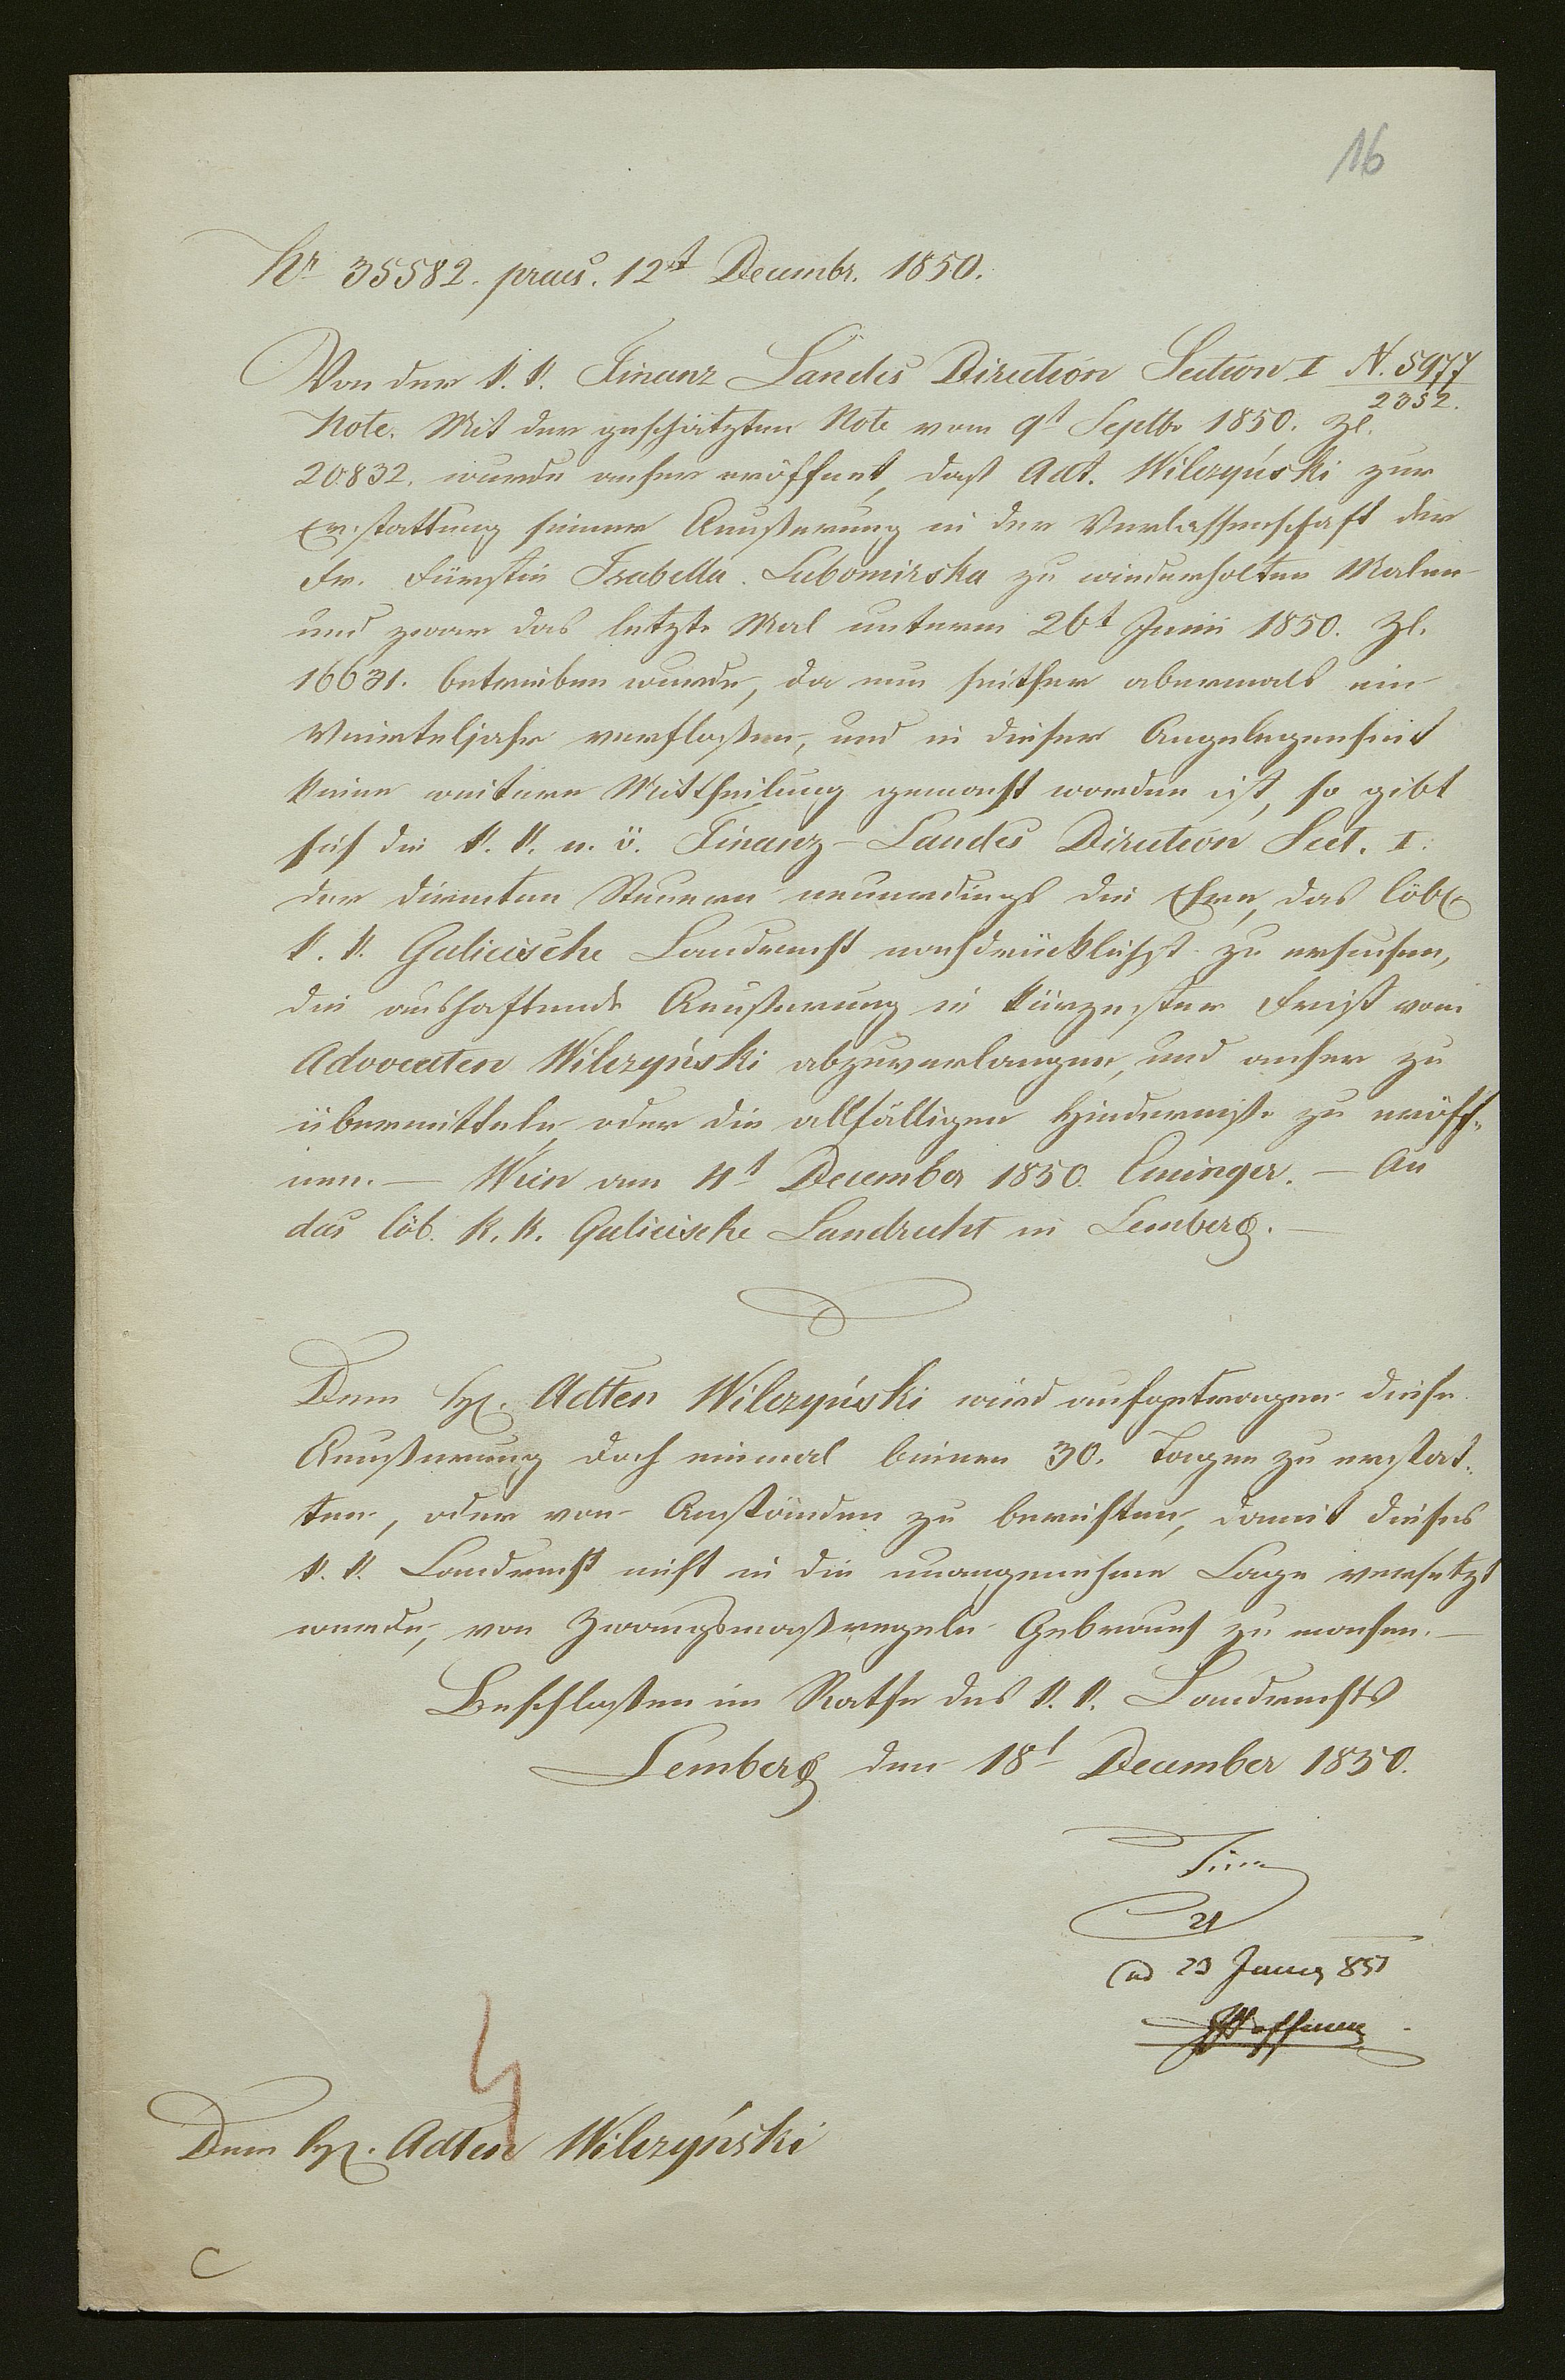 16
Nr 35582. praes. 12t Decembr. 1850.
Von der k. k. Finanz Landes Direction Section I N. 5977
2352.
Note. Mit der geschätzten Note vom 9t Septbr 1850. Zl.
20832. wurde anher eröffnet, daß Adt. Wilczyński zur
Erstattung seiner Aeußerung in der Verlassenschaft der
Fr. Fürstin Isabella Lubomirska zu wiederholten Malen
und zwar das letzte Mal unterm 26t Juni 1850. Zl.
16631. betrieben wurde, da nun seither abermals ein
Vierteljahr verfloßen, und in dieser Angelegenheit
keine weitere Mittheilung gemacht worden ist, so gibt
sich die k. k. n. ö. Finanz-Landes Direction Sect. I.
der directen Steuern neuerdings die Ehre, das löbl.
k. k. Galicische Landrecht nachdrücklichst zu ersuchen,
die aushaftende Aeußerung in kürzester Frist vom
Advocaten Wilczyński abzuverlangen, und anher zu
übermitteln, oder die allfälligen Hinderniße zu eröff-
nen. — Wien am 4t December 1850. Eminger. — An
das löb. k. k. Galicische Landrecht in Lemberg. —
Dem H. Adten Wilczyński wird aufgetragen diese
Aeußerung doch einmal binnen 30. Tagen zu erstat-
ten, oder von Anständen zu berichten, damit dieses
k. k. Landrecht nicht in die unangenehme Lage versetzt
werde, von Zwangsmaßregeln Gebrauch zu machen. —
Beschloßen im Rathe des k. k. Landrechts
Lemberg den 18t December 1850.
23 851
Hoffmann
Dem H. Adten Wilczyński
C